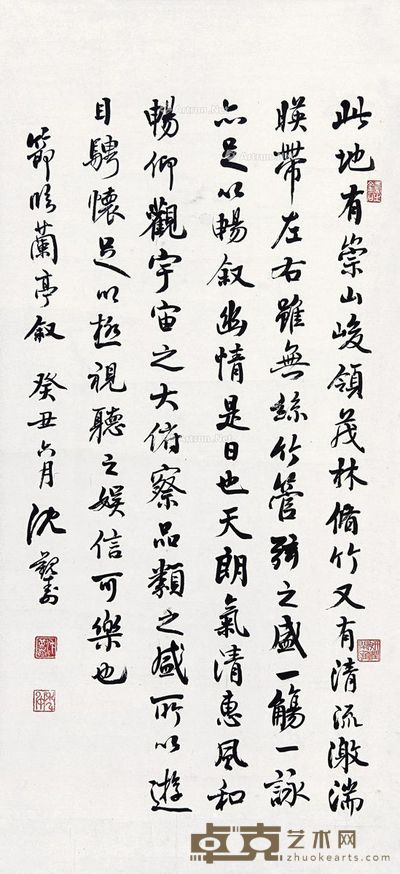 此地有崇山峻領茂林脩竹又有清流激湍
暎帶左右雖無絲竹管弦之盛一觴一詠
亦足以暢叙幽情是日也天朗氣清惠風和
暢仰觀宇宙之大俯察品類之盛所以遊
目騁懷足以極視聽之娛信可樂也
節臨蘭亭叙 癸丑六月 沈觀壽
卓克艺术网
zhuokearts.com